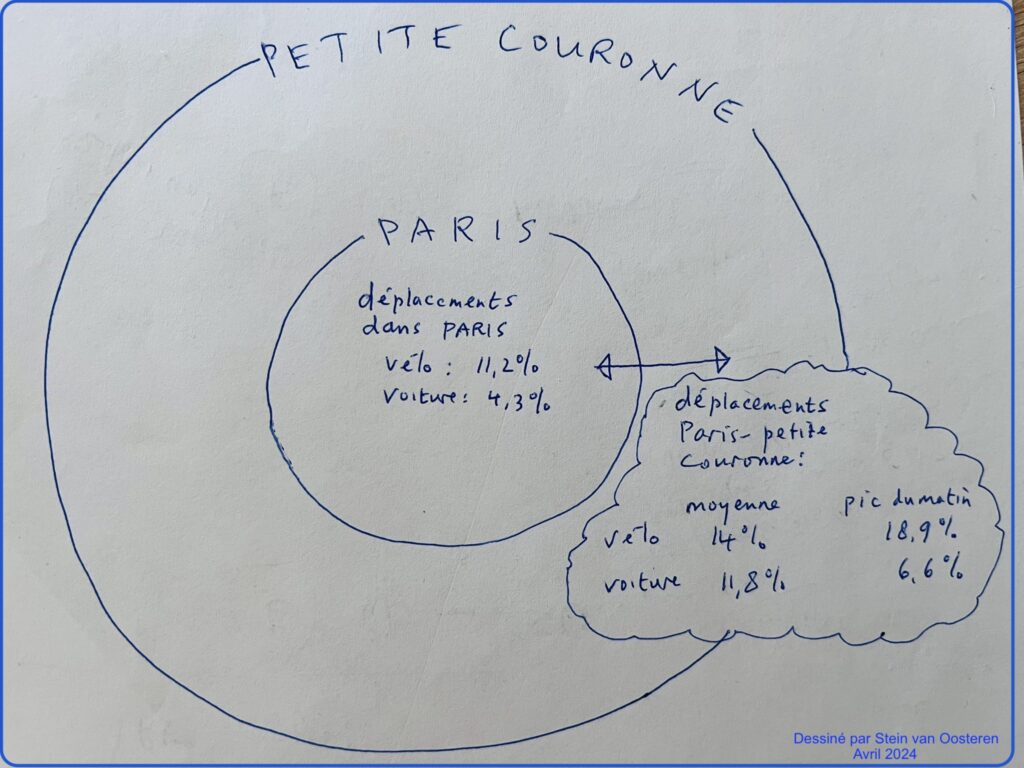 PETITE COURONNE
PARIS
déplacements
dans PARIS
vélo : 11,2%
voiture : 4,3%
déplacements
Paris-petite
couronne :
moyenne pic du matin
vélo 14% 18,9%
voiture 11,8% 6,6%
Dessiné par Stein van Oosteren
Avril 2024